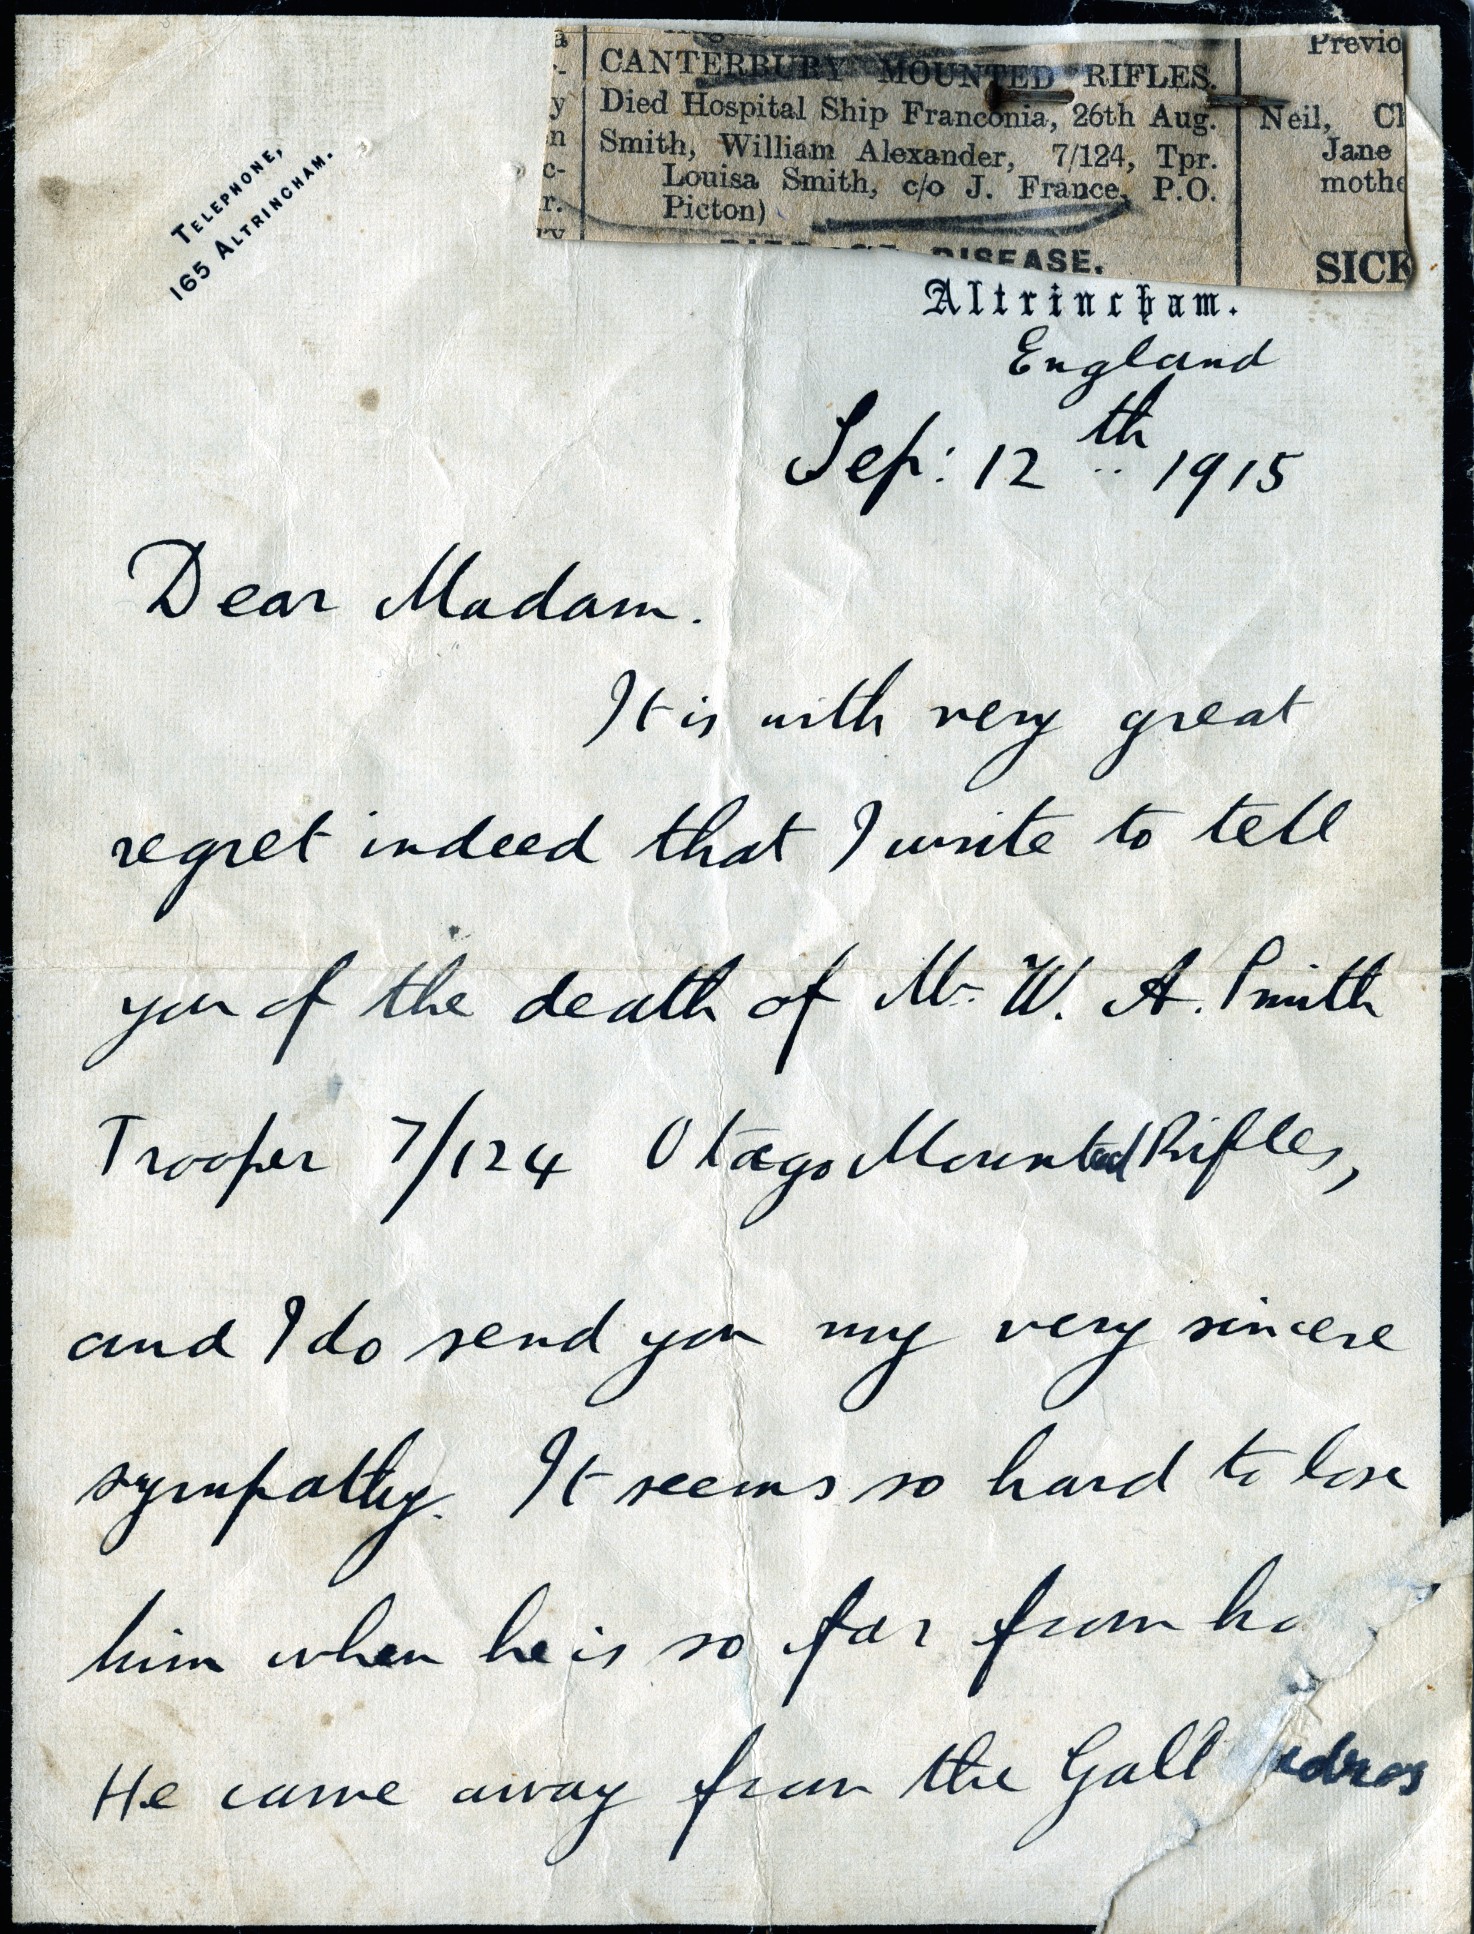 TELEPHONE,
165 ALTRINCHAM.
CANTERBURY MOUNTED RIFLES.
Died Hospital Ship Franconia, 26th Aug.
Smith, William Alexander, 7/124, Tpr.
Louisa Smith, c/o J. France, P.O.
Picton)
DISEASE.
Previo
Neil, Cl
Jane
mothe
SICK
Altrincham.
England
Sep: 12th 1915
Dear Madam.
It is with very great
regret indeed that I write to tell
you of the death of Mr. W. A. Smith
Trooper 7/124 Otago Mounted Rifles,
and I do send you my very sincere
sympathy. It seems so hard to lose
him when he is so far from ho
He came away from the Gall